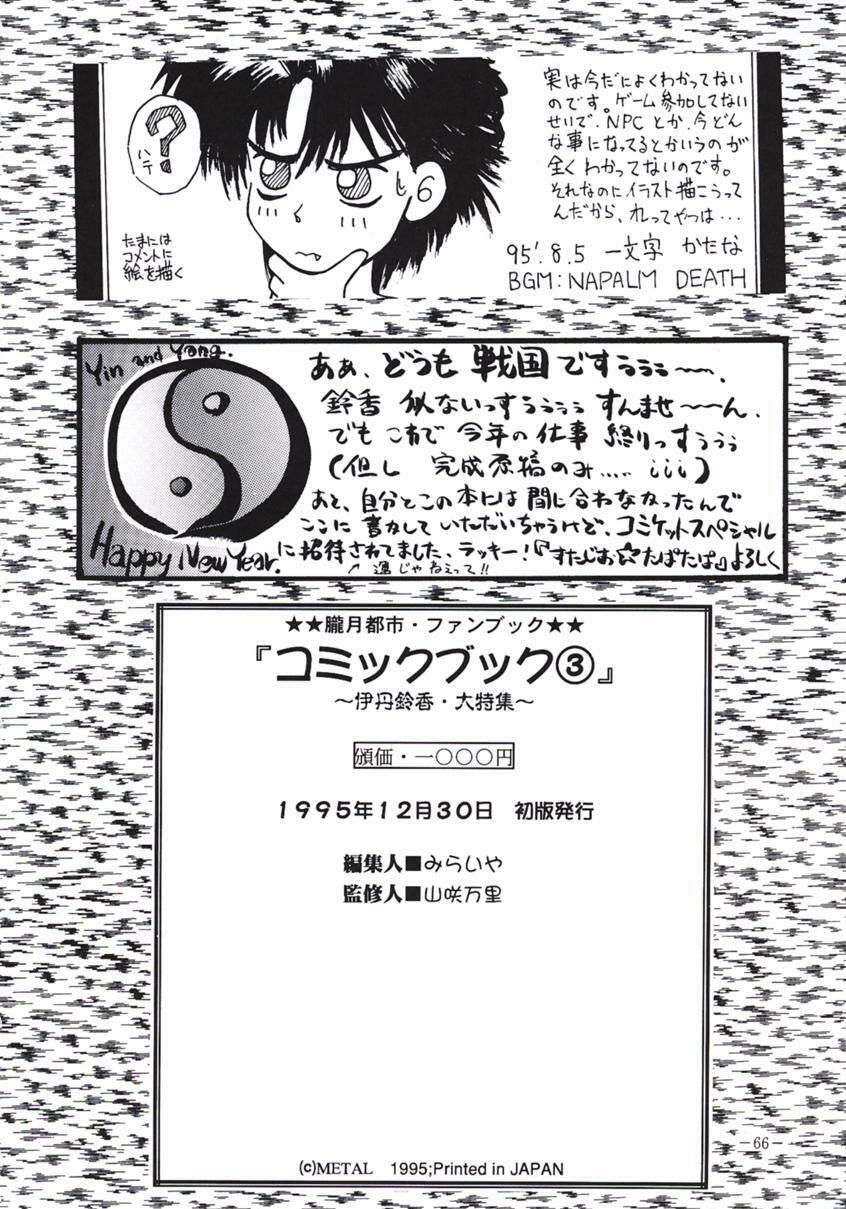 ？
ハテ
たまには
コメントに
絵を描く
実は今だによくわかってない
のです。ゲーム参加してない
せいで、NPCとか、今どん
な事になってるとかいうのが
全くわかってないのです。
それなのにイラスト描こうって
んだから、れってやつは…
95'.8.5 一文字 かたな
BGM:NAPALM DEATH
Yin and Yang.
Happy New Year.
ああ、どうも戦国ですぅぅぅ〜〜、
鈴香 似ないっすぅぅぅぅ すんませ〜〜ん、
でも これで 今年の仕事 終りっすぅぅぅ
(但し 完成原稿のみ…. iii)
あと、自分とこの本には間に合わなかったんで
ここに書かしていただいちゃうけど、コミケットスペシャル
に招待されてました、ラッキー!『すたじお☆たぱたぱ』よろしく
↗ 違じゃねえって!!
★★朧月都市・ファンブック★★
『コミックブック③』
〜伊丹鈴香・大特集〜
頒価・一〇〇〇円
1995年12月30日 初版発行
編集人■みらいや
監修人■山咲万里
(c)METAL 1995;Printed in JAPAN
－66－